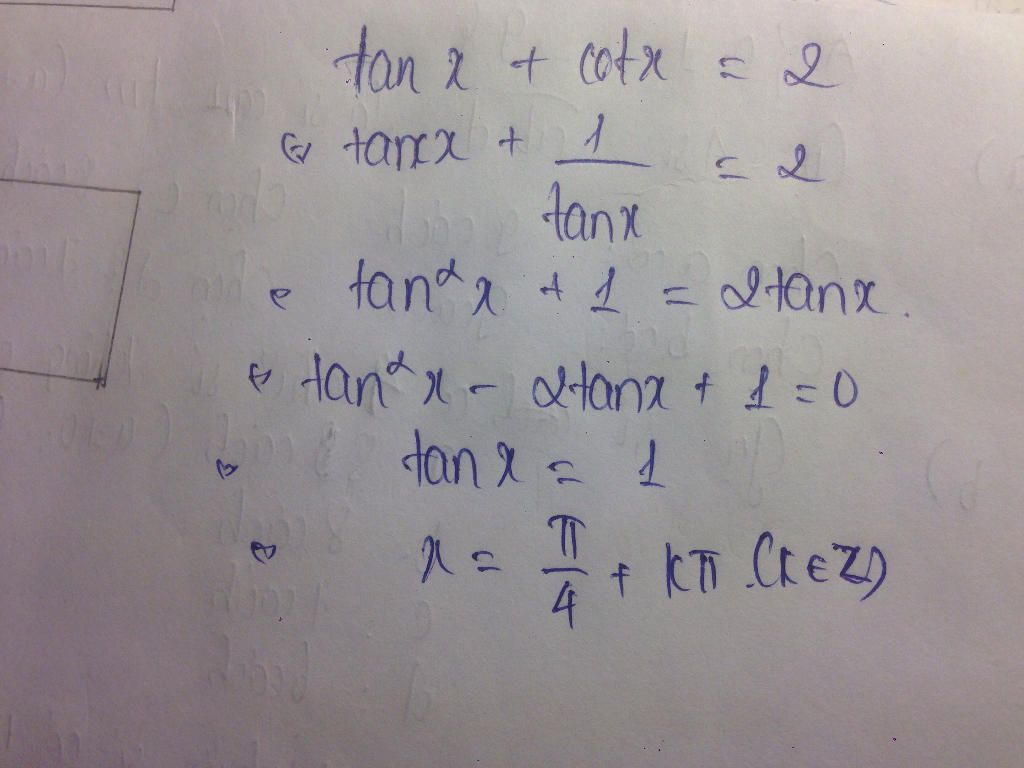 tan x + cotx = 2
⇔ tanx + 1/tanx = 2
⇔ tan²x + 1 = 2tanx.
⇔ tan²x - 2tanx + 1 = 0
⇔ tan x = 1
⇔ x = π/4 + kπ. (k ∈ Z)